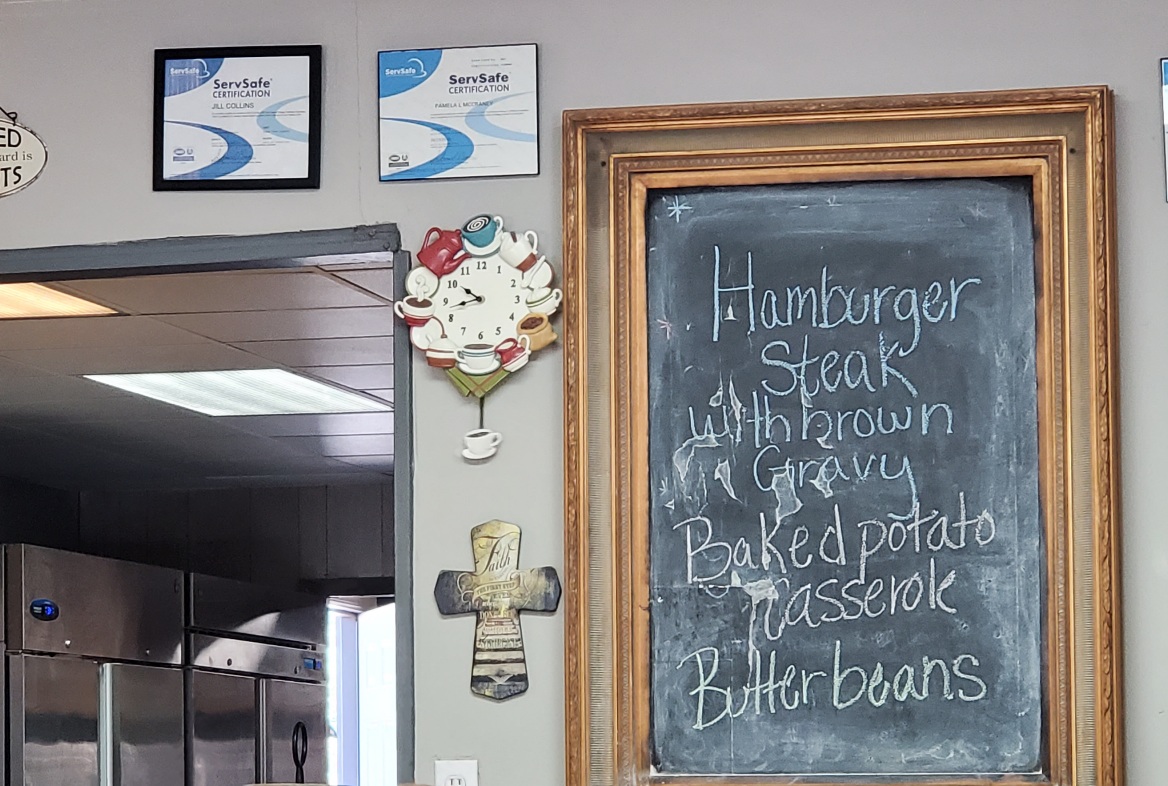 ED
ard is
TS
ServSafe
ServSafe
CERTIFICATION
JILL COLLINS
ServSafe
ServSafe
CERTIFICATION
12
1
2
3
4
5
6
7
8
9
10
11
Faith
Hamburger
Steak
with brown
Gravy
Baked potato
Casserole
Butter beans